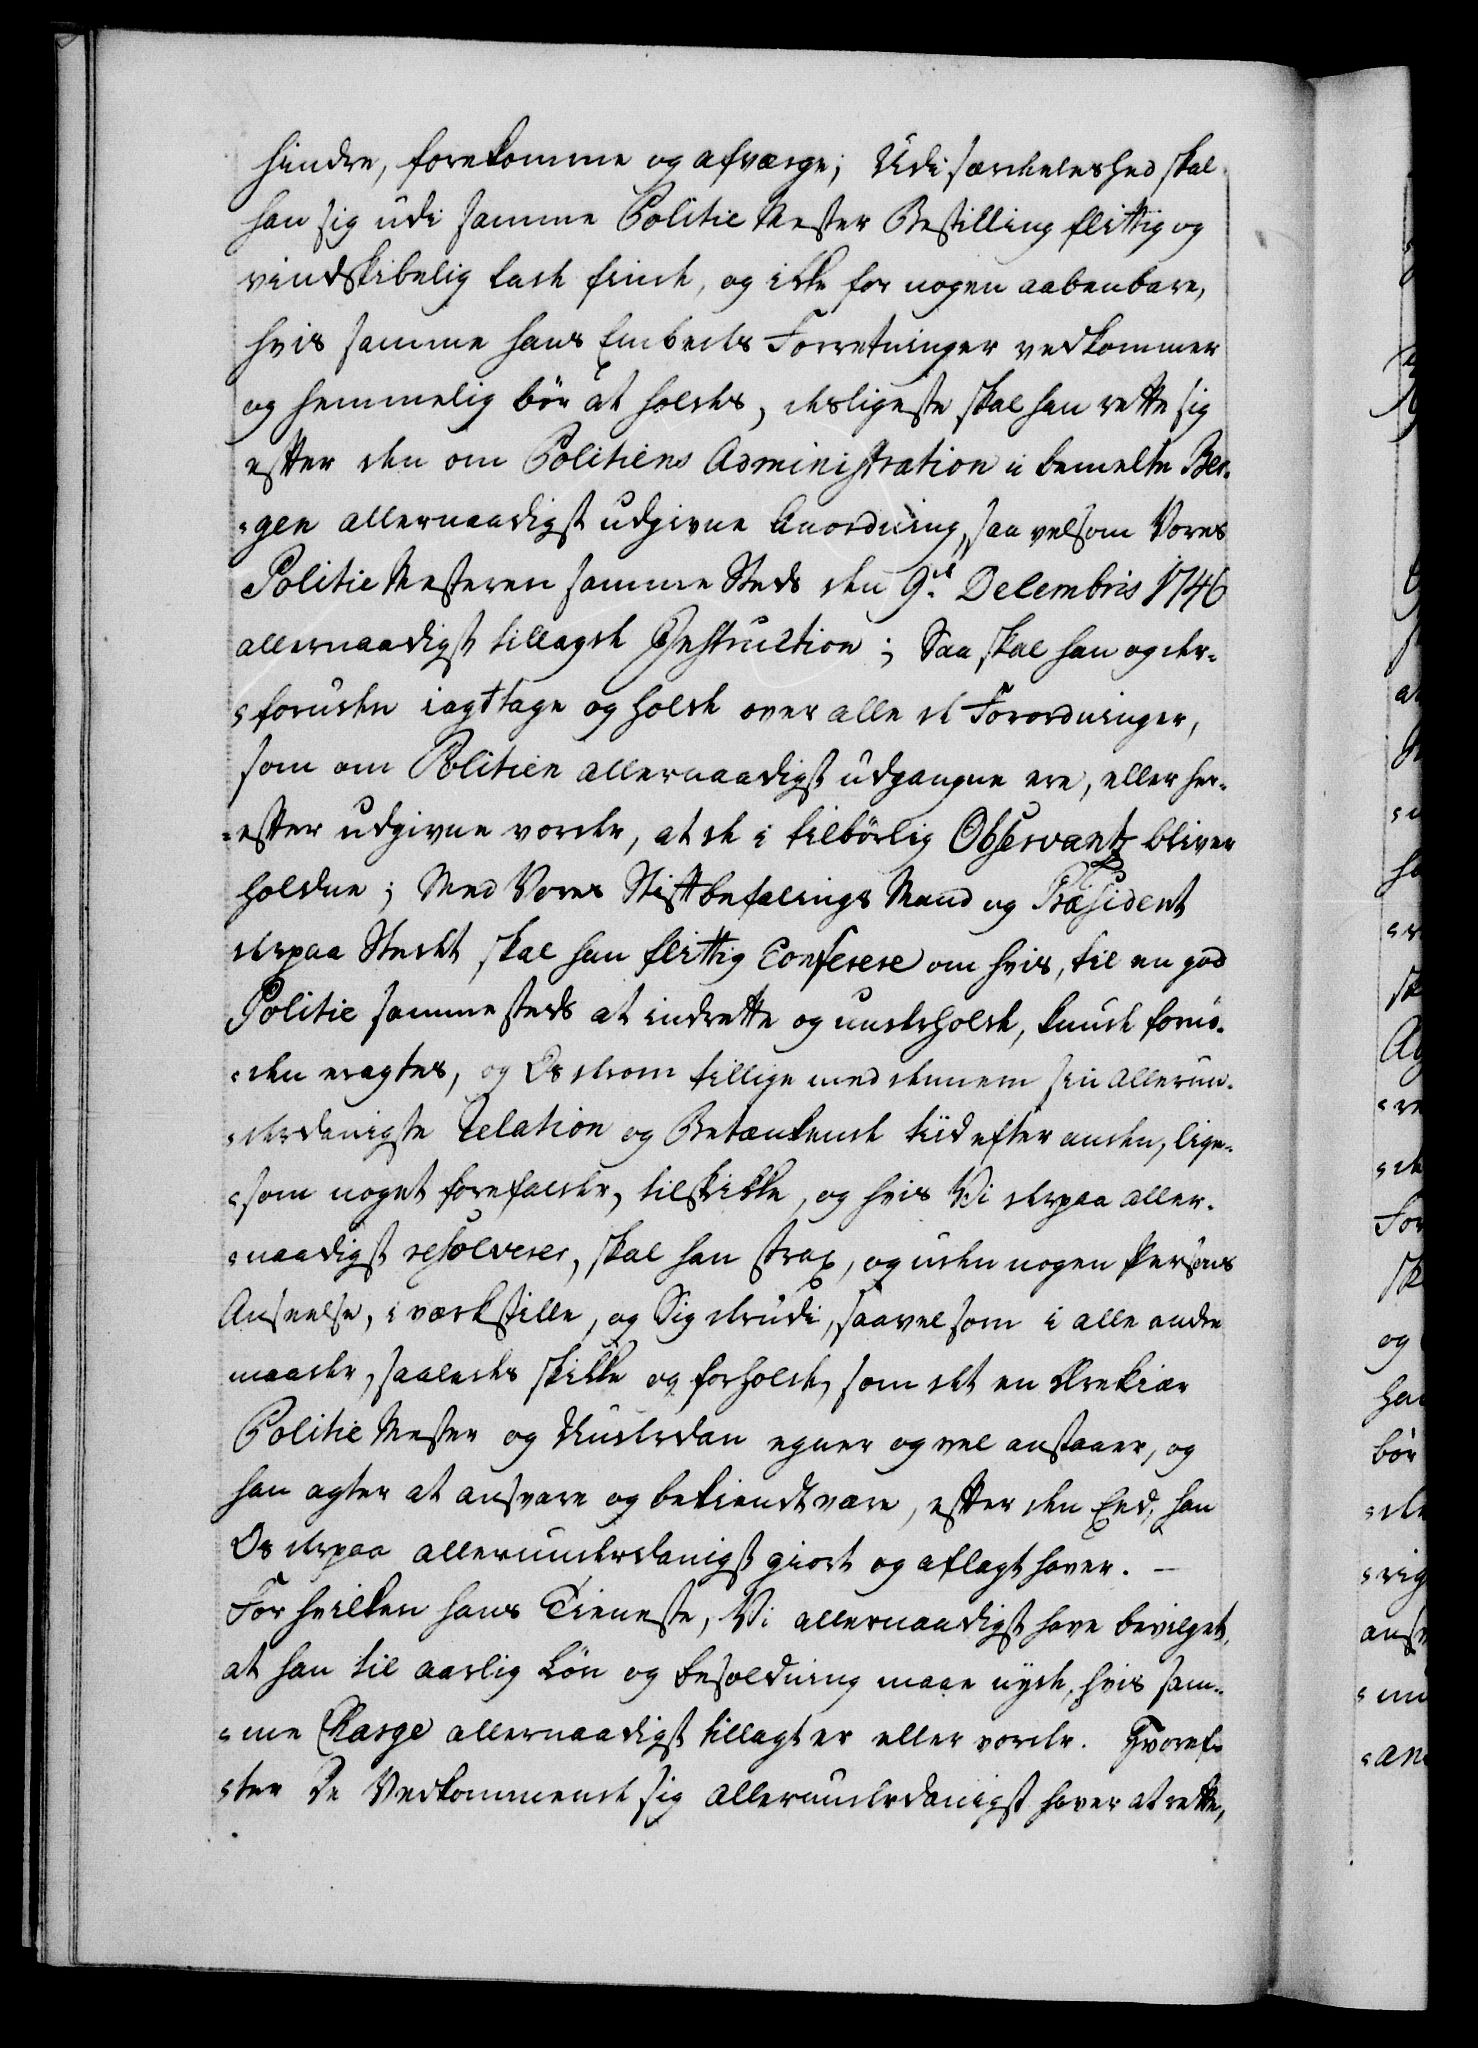 hindre, forekomme og afværge; Udi særdeleshed skal
han sig udi samme Politie Mester Bestilling flittig og
vindskibelig lade finde, og ikke for nogen aabenbare,
hvis samme hans Embeds Forretninger vedkommer
og hemmelig bör at holdes, desligeste skal han rette sig
efter den om Politiens Administration i bemelte Ber-
-gen allernaadigst udgivne Anordning, saa velsom Vores
Politie Mesteren samme Steds den 9.de Decembris 1746
allernaadigst tillagde Instruction; Saa skal han og der-
-foruden iagttage og holde over alle de Forordninger,
som om Politien allernaadigst udgangne ere, eller her-
-efter udgivne vorder, at de i tilbörlig Observantz bliver
holdne; Med Vores Stiftbefalings Mand og Præsident
derpaa Stedet skal han flittig Conferere om hvis, til en god
Politie sammesteds at indrette og underholde, kunde fornö-
-den eragtes, og Os derom tillige med dennem sin allerun-
-derdanigste Relation og Betænkende tiid efter anden, lige-
-som noget forefalder, tilskikke, og hvis Vi derpaa aller-
-naadigst resolverer, skal han strax, og uden nogen Persons
Anseelse, i værkstille, og Sig derudi, saavelsom i alle andre
maader, saaledes skikke og forholde, som det en Ærekiær
Politie Mester og Underdan egner og vel anstaaer, og
han agter at ansvare og bekiendt være, efter den Eed, han
Os derpaa allerunderdanigst giort og aflagt haver. —
For hvilken hans Tieneste, Vi allernaadigst have bevilget,
at han til aarlig Lön og besoldning maae nyde, hvis sam-
-me Charge allernaadigst tillagt er eller vorder. Hvoref-
-ter De Vedkommende sig allerunderdanigst haver at rette,